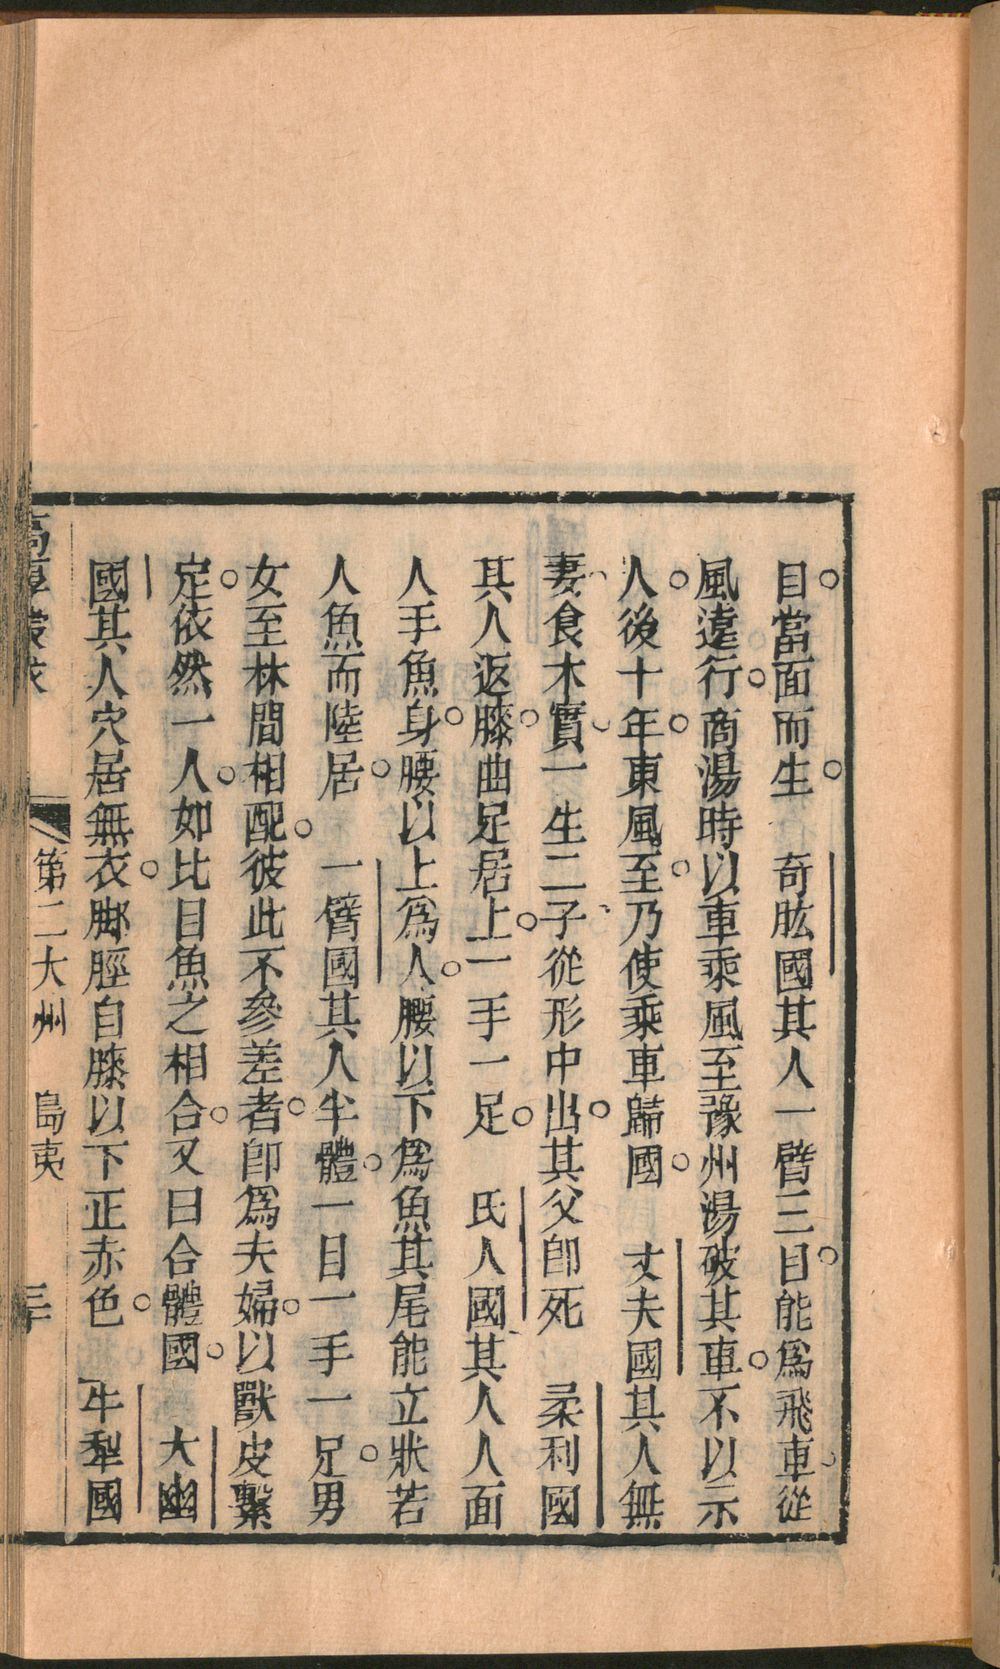 目當面而生　奇肱國其人一臂三目能爲飛車從
風遠行商湯時以車乘風至豫州湯破其車不以示
人後十年東風至乃使乘車歸國　丈夫國其人無
妻食木實一生二子從形中出其父卽死　柔利國
其人返膝曲足居上一手一足　氐人國其人人面
人手魚身腰以上爲人腰以下爲魚其尾能立狀若
人魚而陸居　一臂國其人半體一目一手一足男
女至林間相配彼此不參差者卽爲夫婦以獸皮繫
定依然一人如比目魚之相合又曰合體國　大幽
國其人穴居無衣脚脛自膝以下正赤色　牛犁國
第二大州　島夷